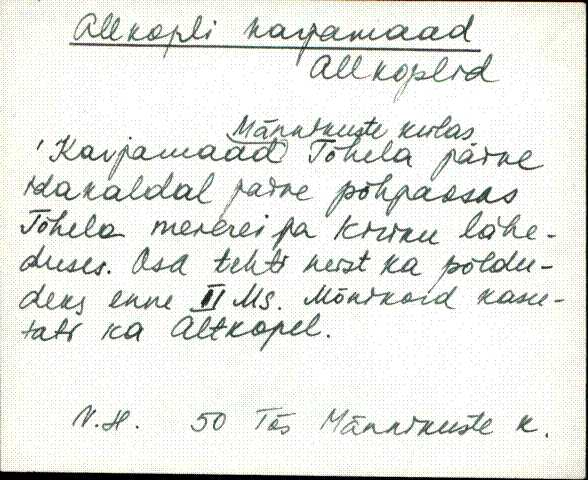 Allkopli karjamaad
Allkoplid
Männikuste külas
'Karjamaad Tõhela järve
idakaldal järve põhjaosas
Tõhela meierei ja kiriku lähe-
duses. Osa tehti neist ka põldu-
deks enne II Ms. Mõnikord kasu-
tati ka Altkopel.
V.H. 50 Tõs Männikuste k.